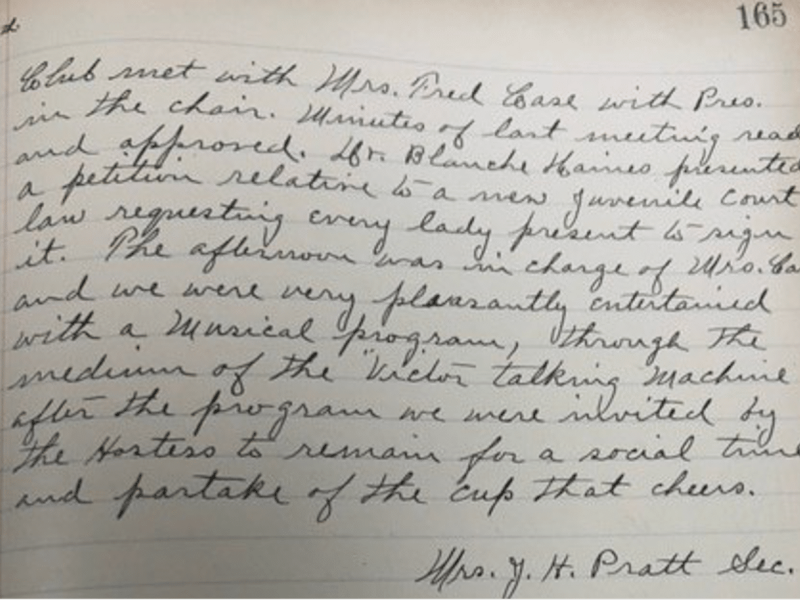 165
Club met with Mrs. Fred Case with Pres.
in the chair. Minutes of last meeting read
and approved. Dr. Blanche Haines presented
a petition relative to a new Juvenile Court
law requesting every lady present to sign
it. The afternoon was in charge of Mrs. Ca
and we were very pleasantly entertained
with a Musical program, through the
medium of the "Victor talking Machine
after the program we were invited by
the Hostess to remain for a social time
and partake of the cup that cheers.
Mrs. J. H. Pratt Sec.